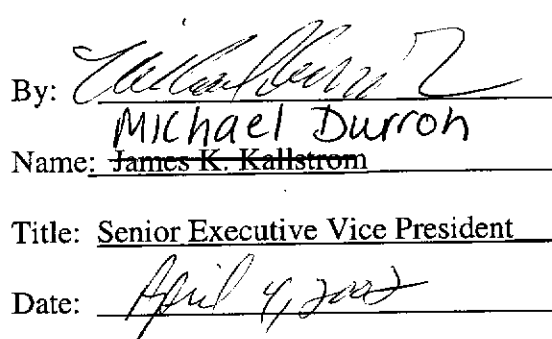 By:
Michael Durron
Name: James K. Kallstrom
Title: Senior Executive Vice President
Date: April 4, 2002